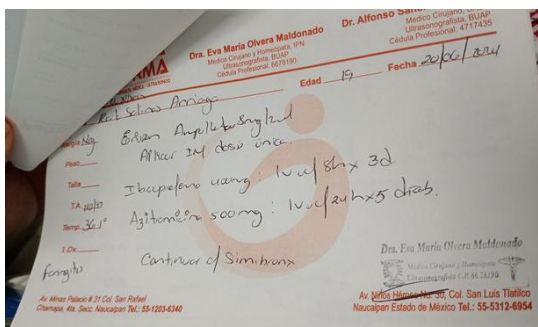 Dra. Eva María Olvera Maldonado
Médico Cirujano y Homeópata, IPN
Ultrasonografista, BUAP
Cédula Profesional: 6678190
Dr. Alfonso
Médico Cirujano,
Ultrasonografista, BUAP
Cédula Profesional: 4717435
Edad 19 Fecha 20/06/2024
Salinas Arriaga
Alergia Neg
Aplicar IM dosis única.
Peso
Talla
Ibuprofeno 400mg: 1 v.o c/ 8h x 3d
T.A.
Azitromicina 500mg: 1 v.o c/ 24h x 5 días.
Temp. 36.1°
I. Dx.
Continuar c/ Simibronx
Faringitis
Dra. Eva María Olvera Maldonado
Médico Cirujano y Homeópata
Ultrasonografista C.P. 6678190
Av. Minas Palacio # 31 Col. San Rafael
Chamapa, 4ta. Secc. Naucalpan Tel.: 55-1203-6340
Av. Niños Héroes No. 30, Col. San Luis Tlatilco
Naucalpan Estado de México Tel.: 55-5312-6954